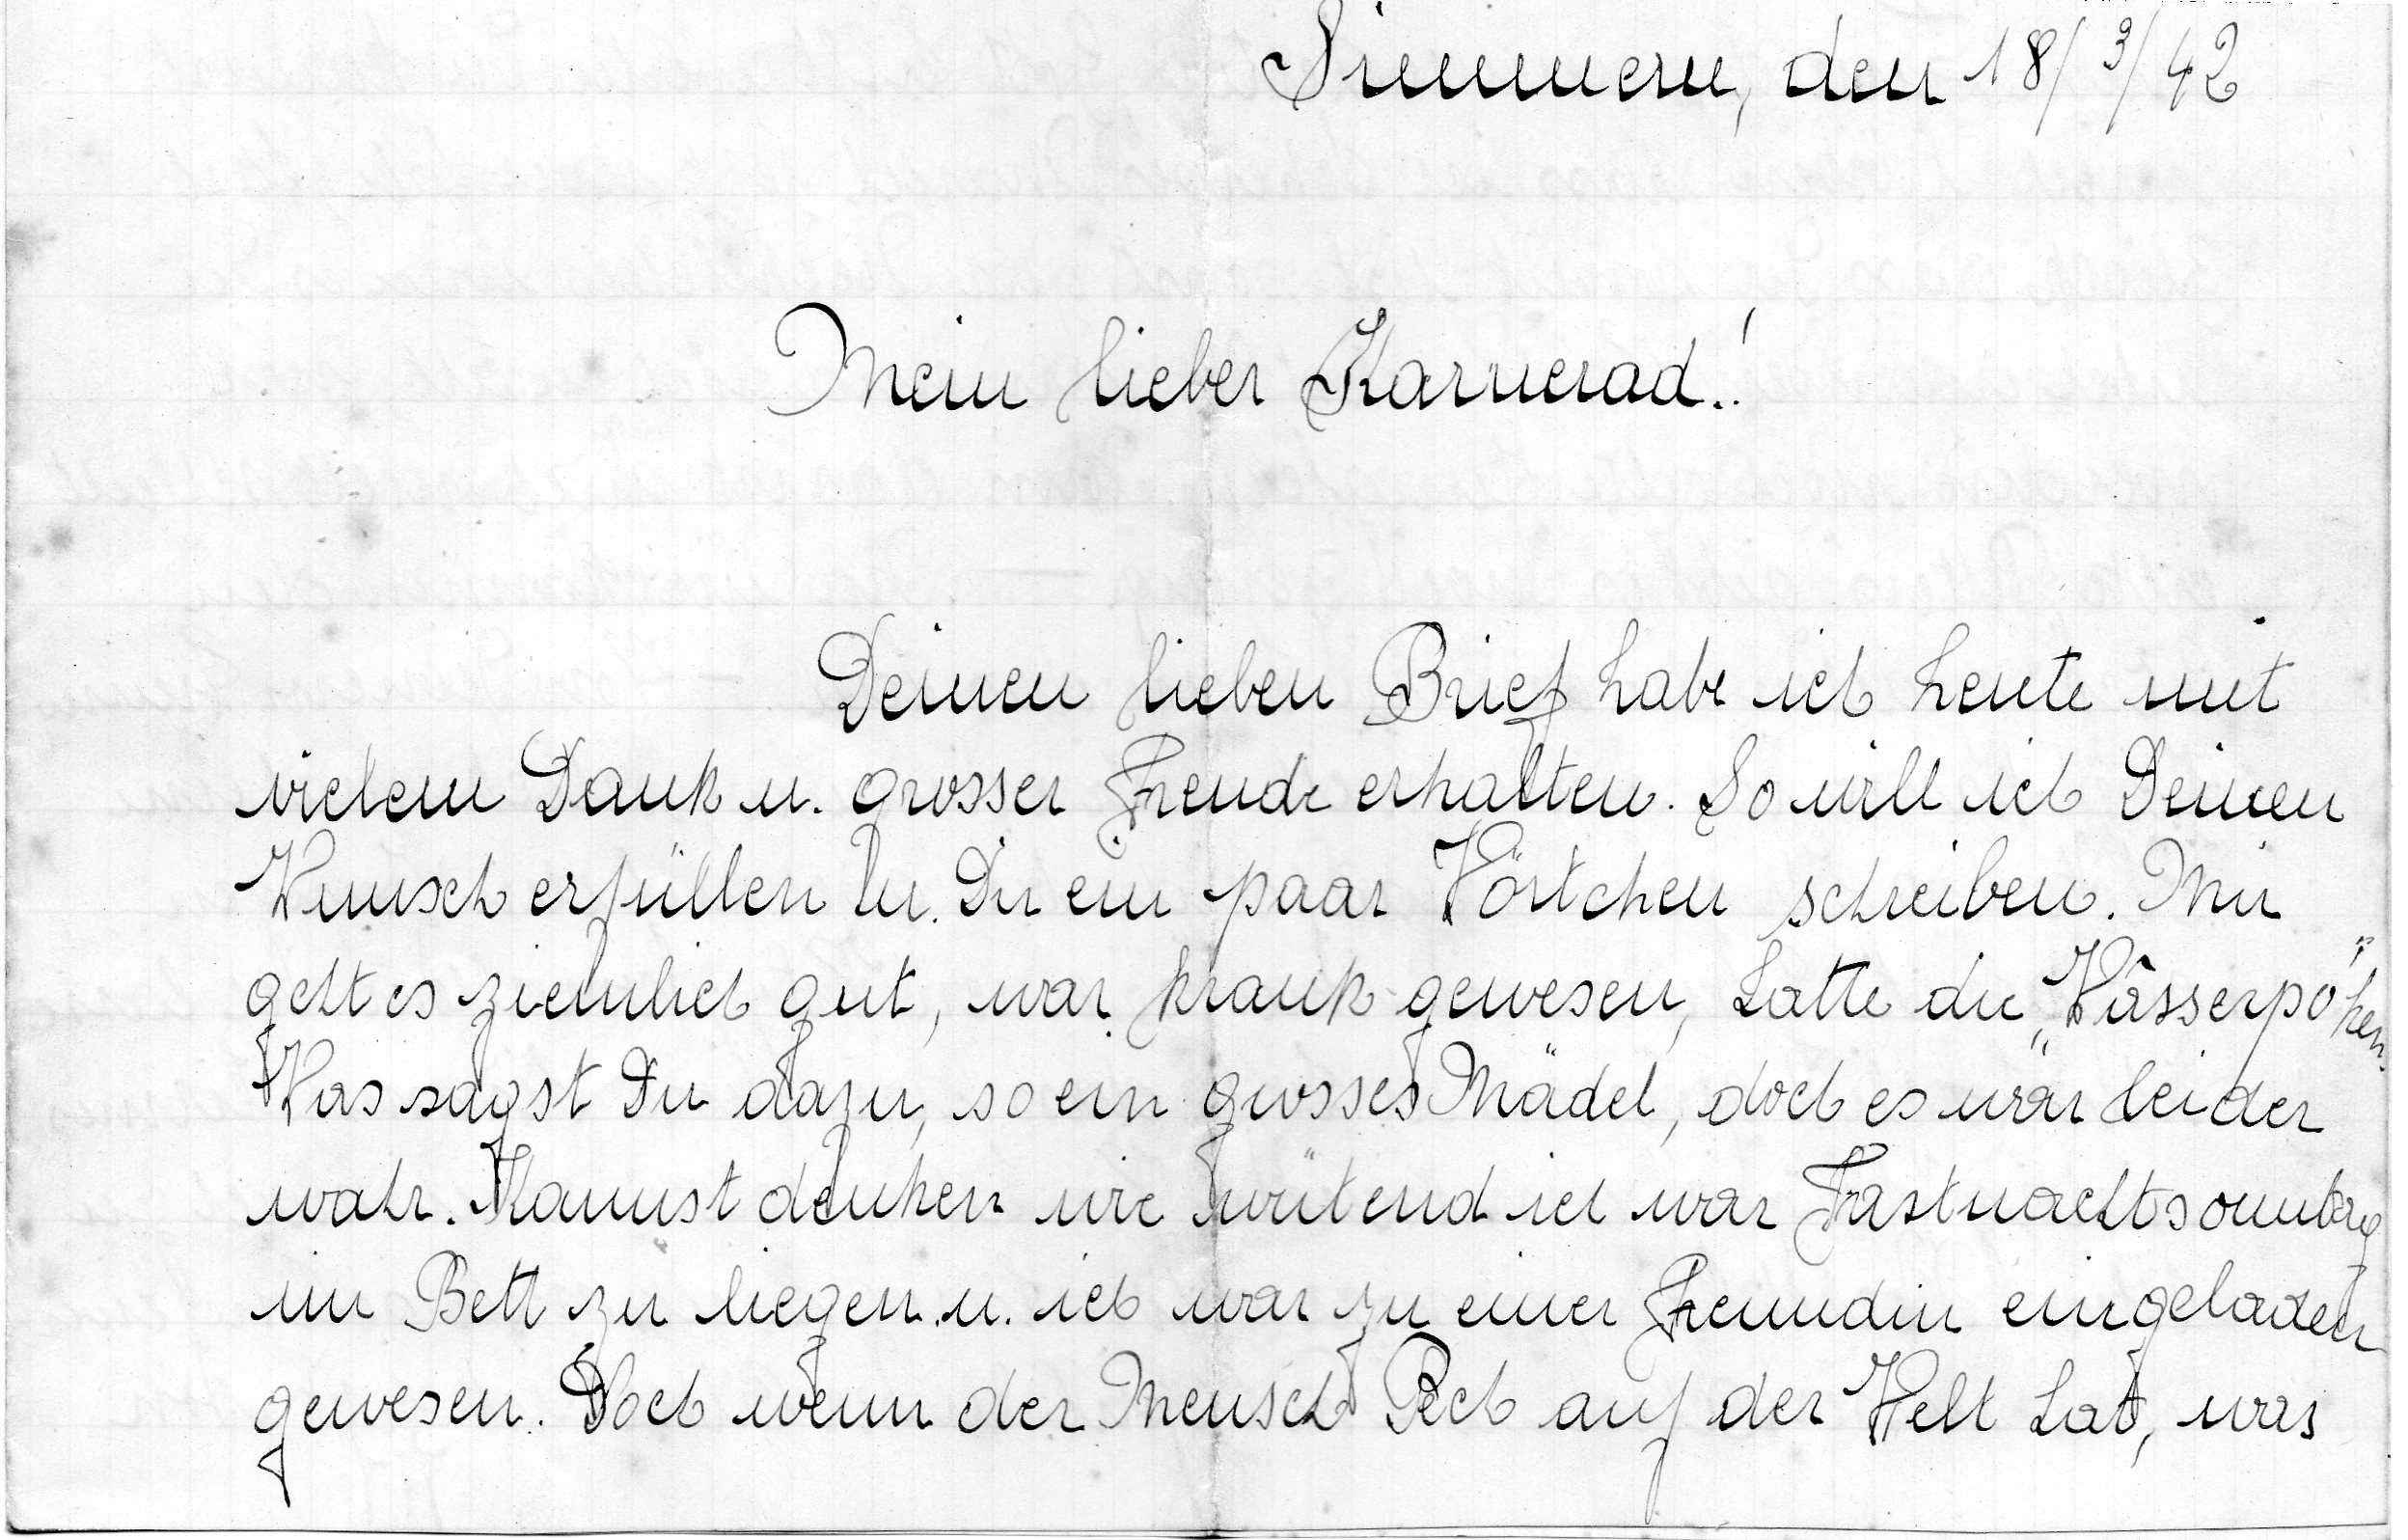 Simmern, den 18/3/42
Mein lieber Kamerad!
Deinen lieben Brief habe ich heute mit
vielem Dank u. grosser Freude erhalten. So will ich Deinen
Wunsch erfüllen u. Dir ein paar Wörtchen schreiben. Mir
geht es ziemlich gut, war krank gewesen, hatte die „Wasserpoken"
Was sagst Du dazu, so ein grosses Mädel, doch es war leider
wahr. Kannst denken wie wütend ich war Fastnachtsonntag
im Bett zu liegen u. ich war zu einer Freundin eingeladen
gewesen. Doch wenn der Mensch Pech auf der Welt hat, was